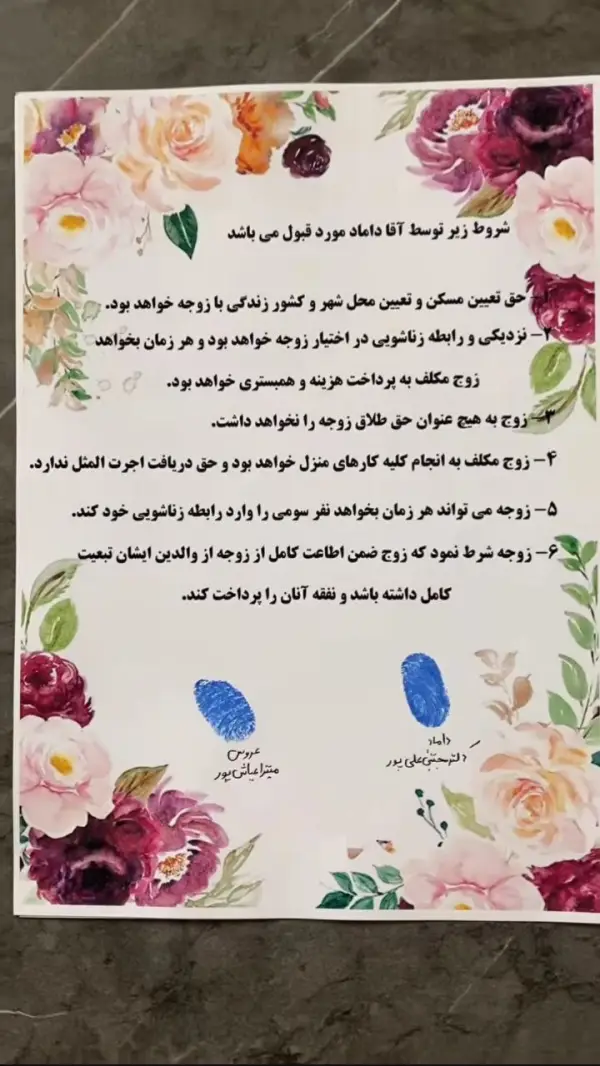 شروط زیر توسط آقا داماد مورد قبول می باشد
۱– حق تعیین مسکن و تعیین محل شهر و کشور زندگی با زوجه خواهد بود.
۲– نزدیکی و رابطه زناشویی در اختیار زوجه خواهد بود و هر زمان بخواهد
زوج مکلف به پرداخت هزینه و همبستری خواهد بود.
۳– زوج به هیچ عنوان حق طلاق زوجه را نخواهد داشت.
۴– زوج مکلف به انجام کلیه کارهای منزل خواهد بود و حق دریافت اجرت المثل ندارد.
۵– زوجه می تواند هر زمان بخواهد نفر سومی را وارد رابطه زناشویی خود کند.
۶– زوجه شرط نمود که زوج ضمن اطاعت کامل از زوجه از والدین ایشان تبعیت
کامل داشته باشد و نفقه آنان را پرداخت کند.
داماد
دکتر مجتبی علی پور
عروس
میترا عباس پور